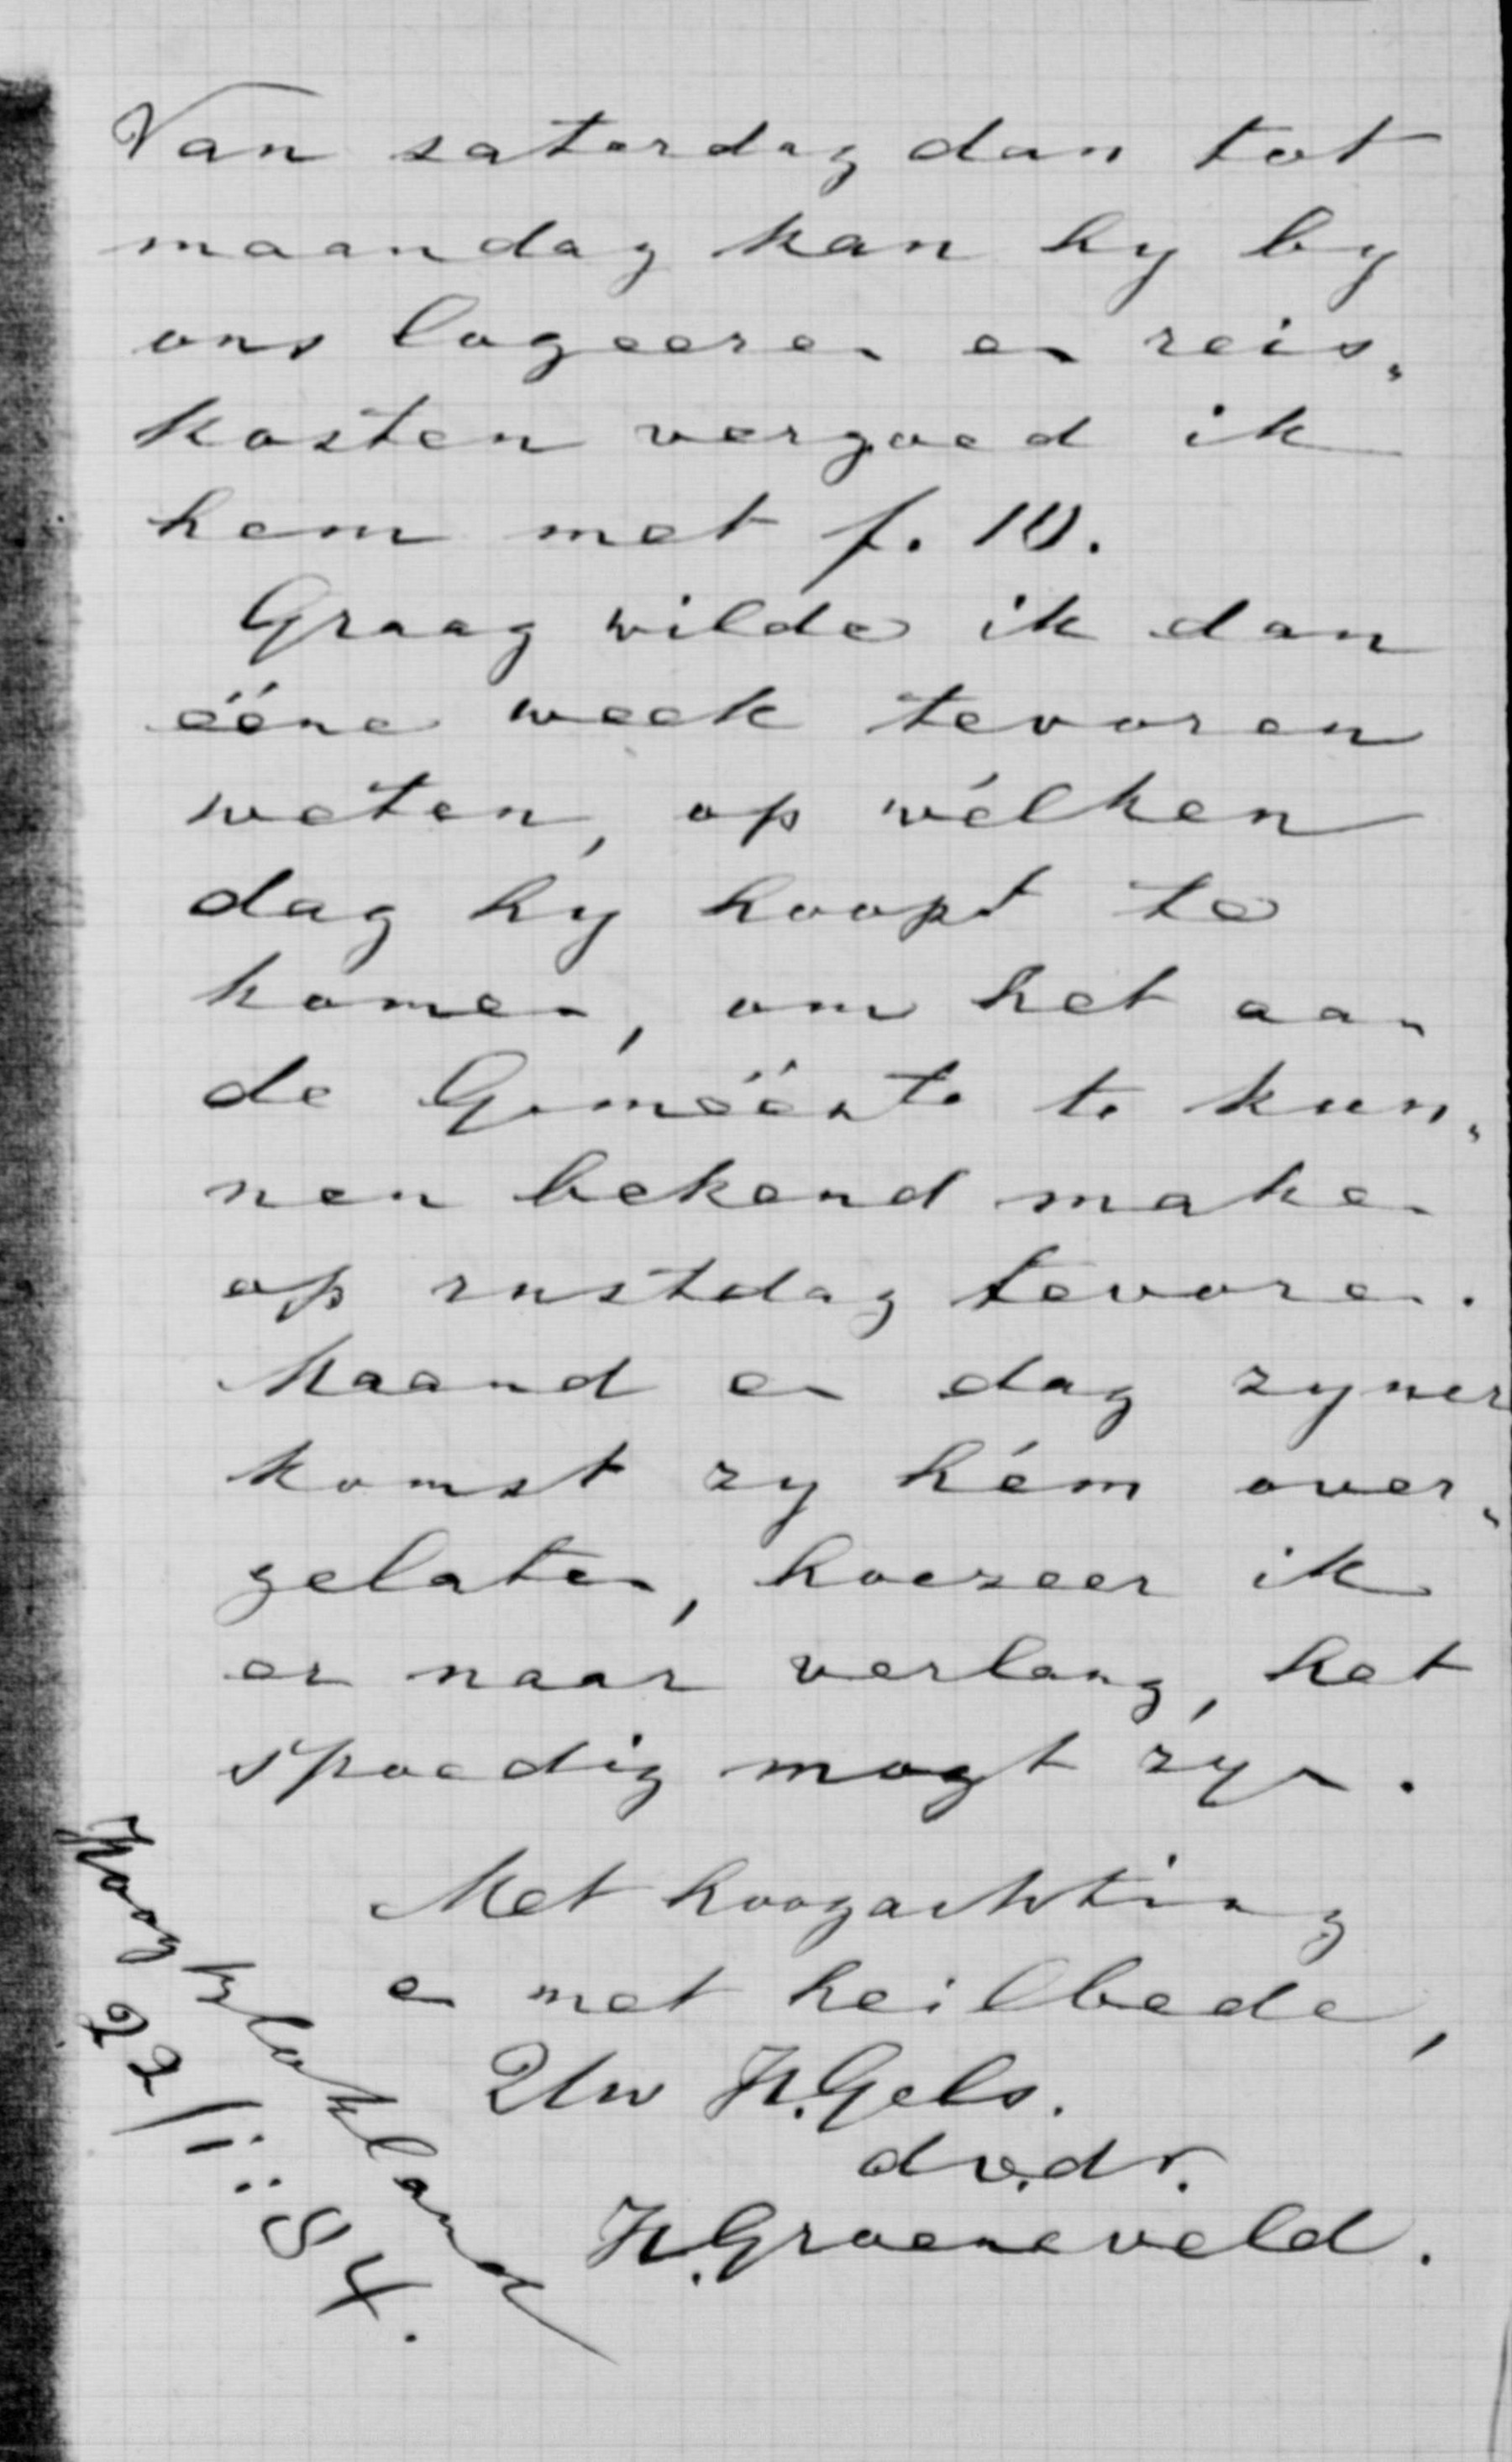 Van saterdag dan tot
maandag kan hy by
ons logeeren en reis„
kosten vergoed ik
hem met f. 10.
Graag wilde ik dan
ééne week tevoren
weten, op wélken
dag hy hoopt te
komen, om het aan
de Geméénte te kun„
nen bekend maken
op rustdag tevoren.
Maand en dag zyner
komst zy hém over„
gelaten, hoezeer ik
er naar verlang, het
spoedig mogt zyn.
Met hoogachting
en met heilbede,
Uw H.Gels.
dv.dr.
H.Groeneveld.
Hoogblokland
22/1:84.